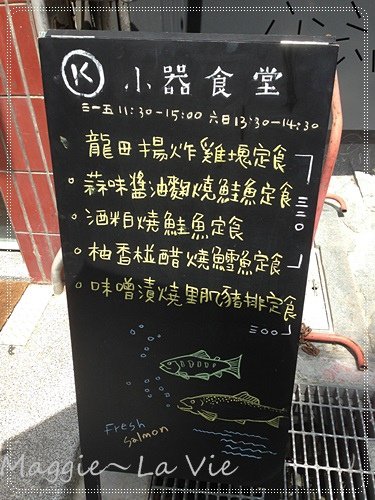 K 小器食堂
三~五 11:30-15:00 六日 13:30-14:30
龍田揚炸雞塊定食
蒜味醬油麴燒鮭魚定食
三三〇
酒粕燒鮭魚定食
柚香椪醋燒鱈魚定食
味噌漬燒里肌豬排定食
三〇〇
Fresh
Salmon
Maggie~La Vie